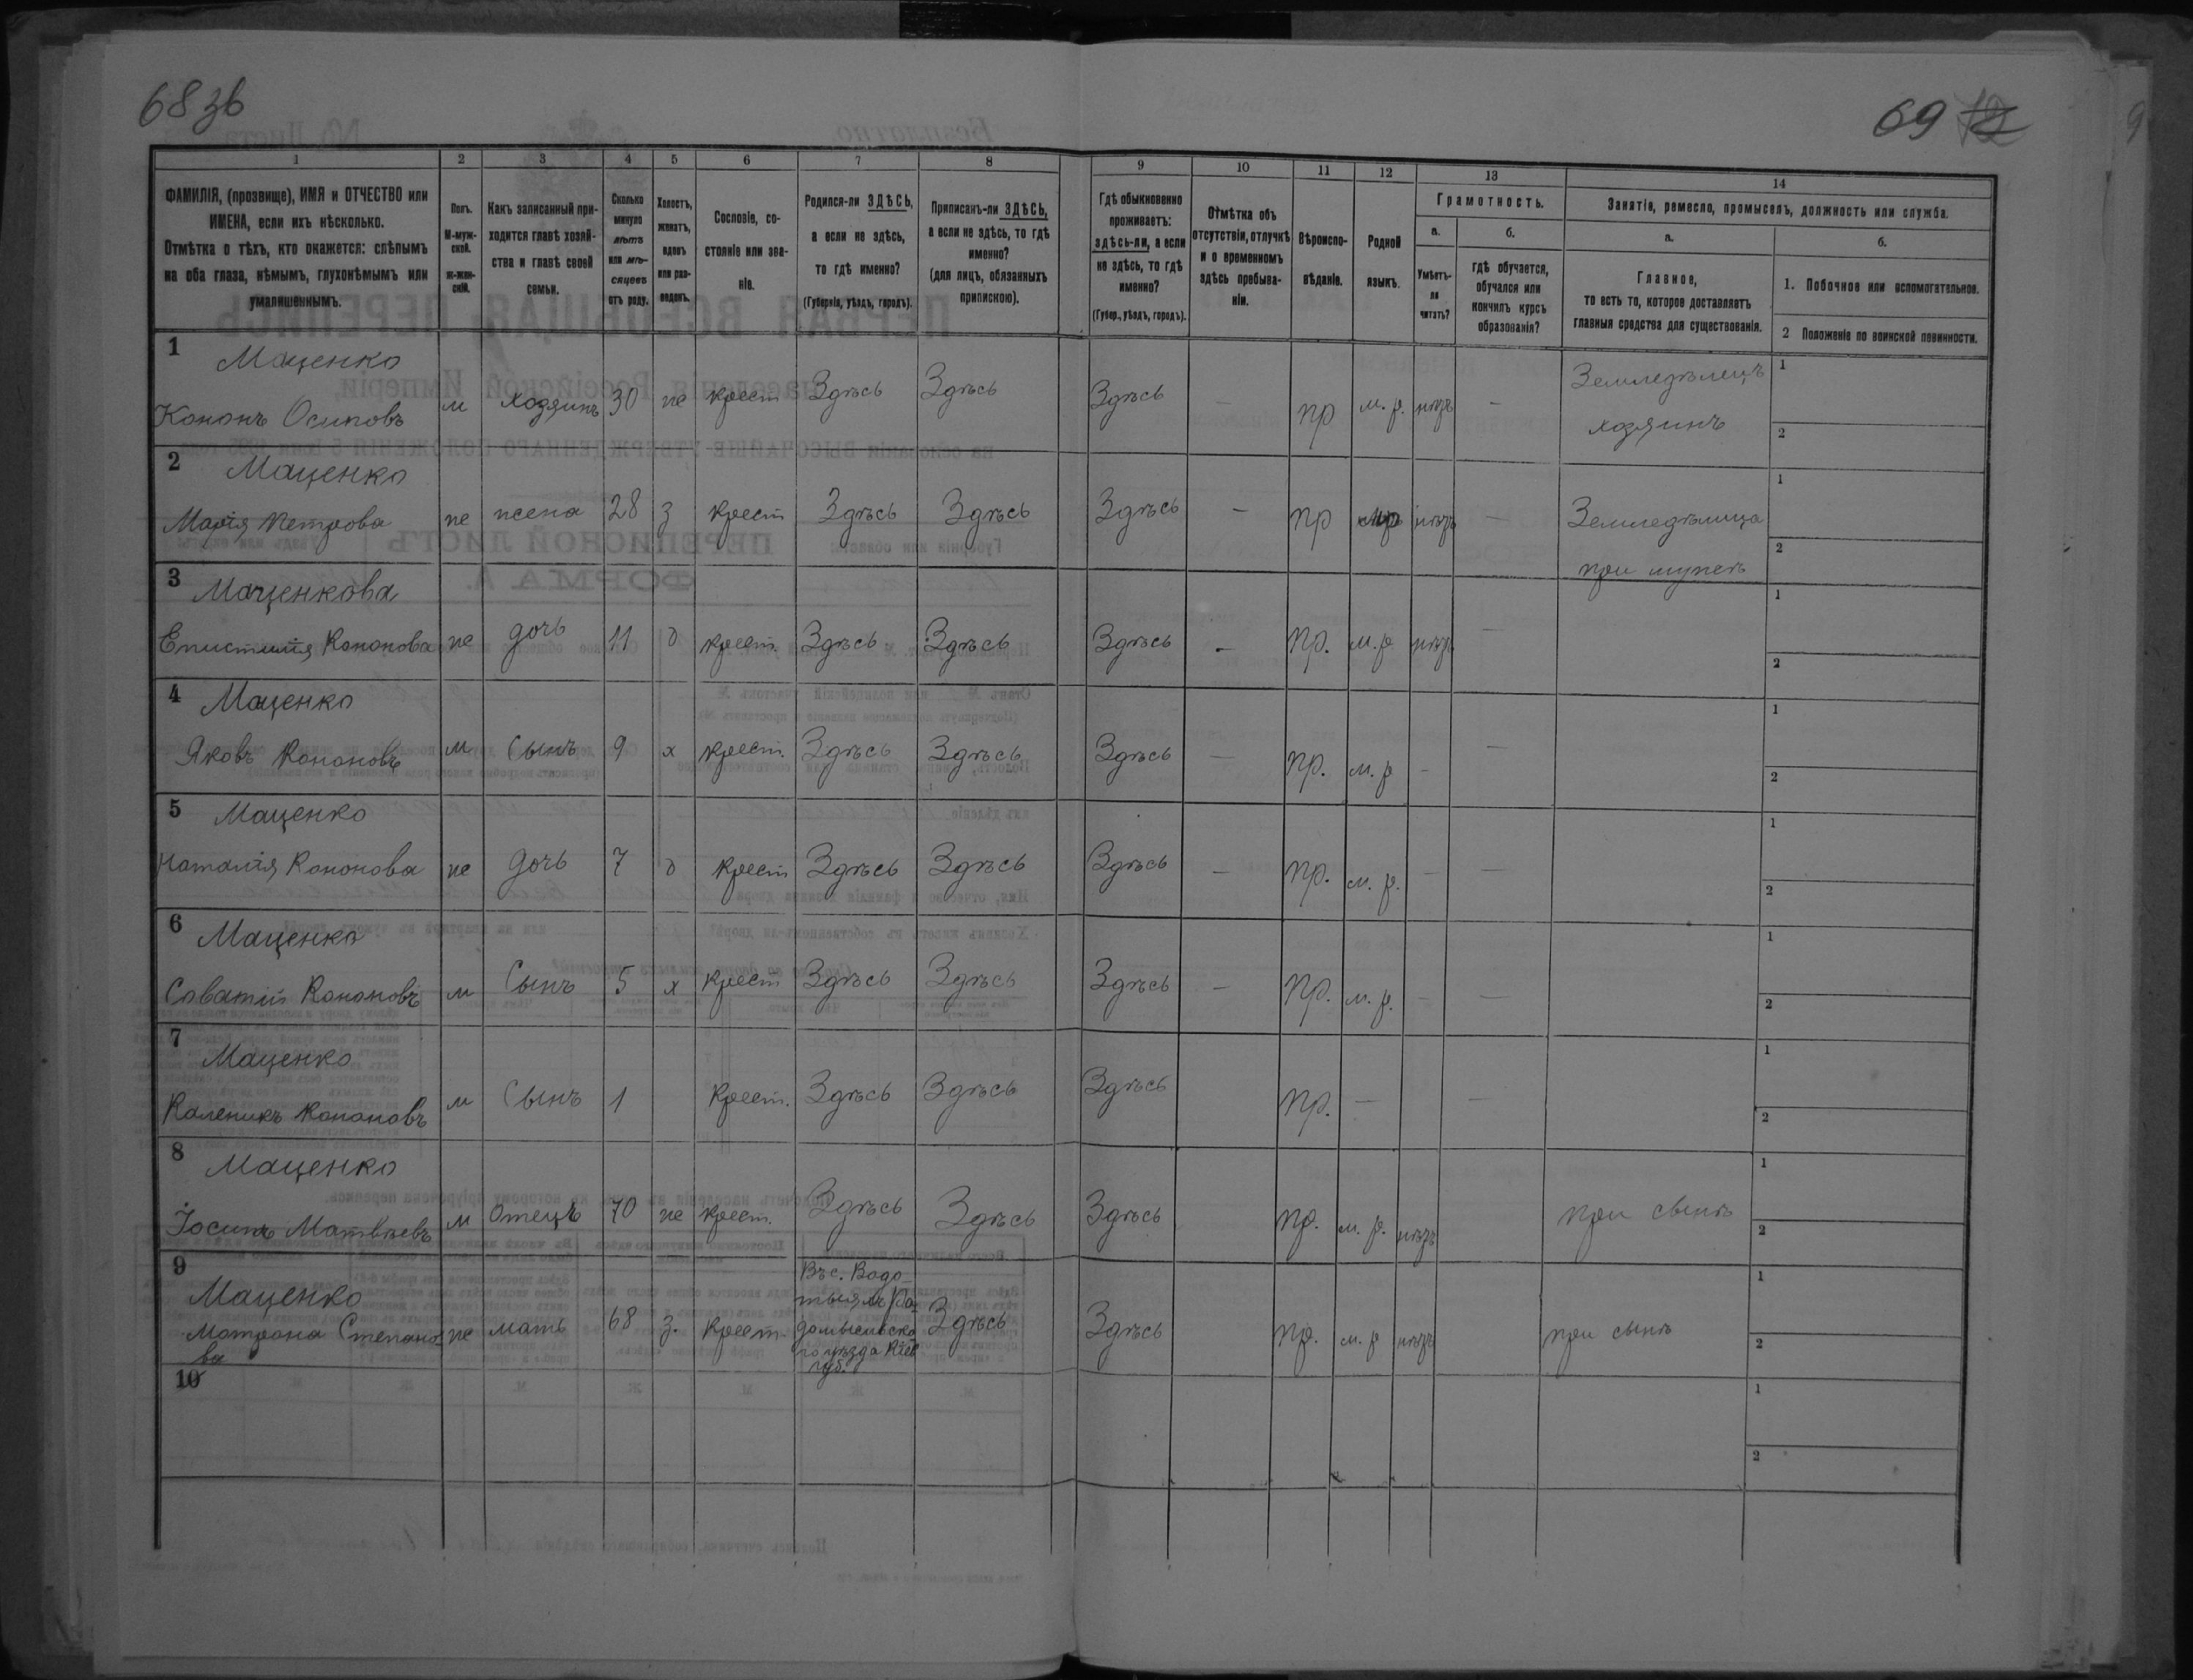 68 зв
69 72
1 2 3 4 5 6 7 8 9 10 11 12 13 14
ФАМИЛІЯ, (прозвище), ИМЯ и ОТЧЕСТВО или ИМЕНА, если ихъ нѣсколько.
Отмѣтка о тѣхъ, кто окажется: слѣпымъ на оба глаза, нѣмымъ, глухонѣмымъ или умалишеннымъ.
Полъ. М-мужской. Ж-женскій.
Какъ записанный приходится главѣ хозяйства и главѣ своей семьи.
Сколько минуло лѣтъ или мѣсяцевъ отъ роду.
Холостъ, женатъ, вдовъ или разведенъ.
Сословіе, состояніе или званіе.
Родился-ли ЗДѢСЬ, а если не здѣсь, то гдѣ именно? (Губернія, уѣздъ, городъ).
Приписанъ-ли ЗДѢСЬ, а если не здѣсь, то гдѣ именно? (для лицъ, обязанныхъ припискою).
Гдѣ обыкновенно проживаетъ: здѣсь-ли, а если не здѣсь, то гдѣ именно? (Губер., уѣздъ, городъ).
Отмѣтка объ отсутствіи, отлучкѣ и о временномъ здѣсь пребываніи.
Вѣроисповѣданіе.
Родной языкъ.
Грамотность.
а. Умѣетъ-ли читать?
б. гдѣ обучается, обучался или кончилъ курсъ образованія?
Занятіе, ремесло, промыселъ, должность или служба.
а. Главное, то есть то, которое доставляетъ главныя средства для существованія.
б. 1. Побочное или вспомогательное.
2 Положеніе по воинской повинности.
1 Маценко
Кононъ Осиповъ м хозяинъ 30 же крест Здѣсь Здѣсь Здѣсь – пр м. р. нѣтъ – Земледѣлецъ хозяинъ 1 2
2 Маценко
Марія Петрова же жена 28 з крест Здѣсь Здѣсь Здѣсь – пр мр нѣтъ – Земледѣлица при мужѣ 1 2
3 Маценкова
Епистимія Кононова же дочь 11 д крест Здѣсь Здѣсь Здѣсь – пр. м. р нѣтъ – 1 2
4 Маценко
Яковъ Кононовъ м Сынъ 9 х крест. Здѣсь Здѣсь Здѣсь – пр. м. р – – 1 2
5 Маценко
Наталія Кононова же дочь 7 д крест Здѣсь Здѣсь Здѣсь – пр. м. р. – – 1 2
6 Маценко
Саватій Кононовъ м Сынъ 5 х крест Здѣсь Здѣсь Здѣсь – пр. м. р. – – 1 2
7 Маценко
Каленикъ Кононовъ м Сынъ 1 Крест. Здѣсь Здѣсь Здѣсь пр. – – 1 2
8 Маценко
Іосипъ Матвѣевъ м Отецъ 70 же крест. Здѣсь Здѣсь Здѣсь пр. м. р. нѣтъ при сынѣ 1 2
9 Маценко
Матрона Степанова же мать 68 з. Крест. Въ с. Водотыяхъ Радомысльского уѣзда Кіев губ. Здѣсь Здѣсь пр. м. р нѣтъ при сынѣ 1 2
10 1 2